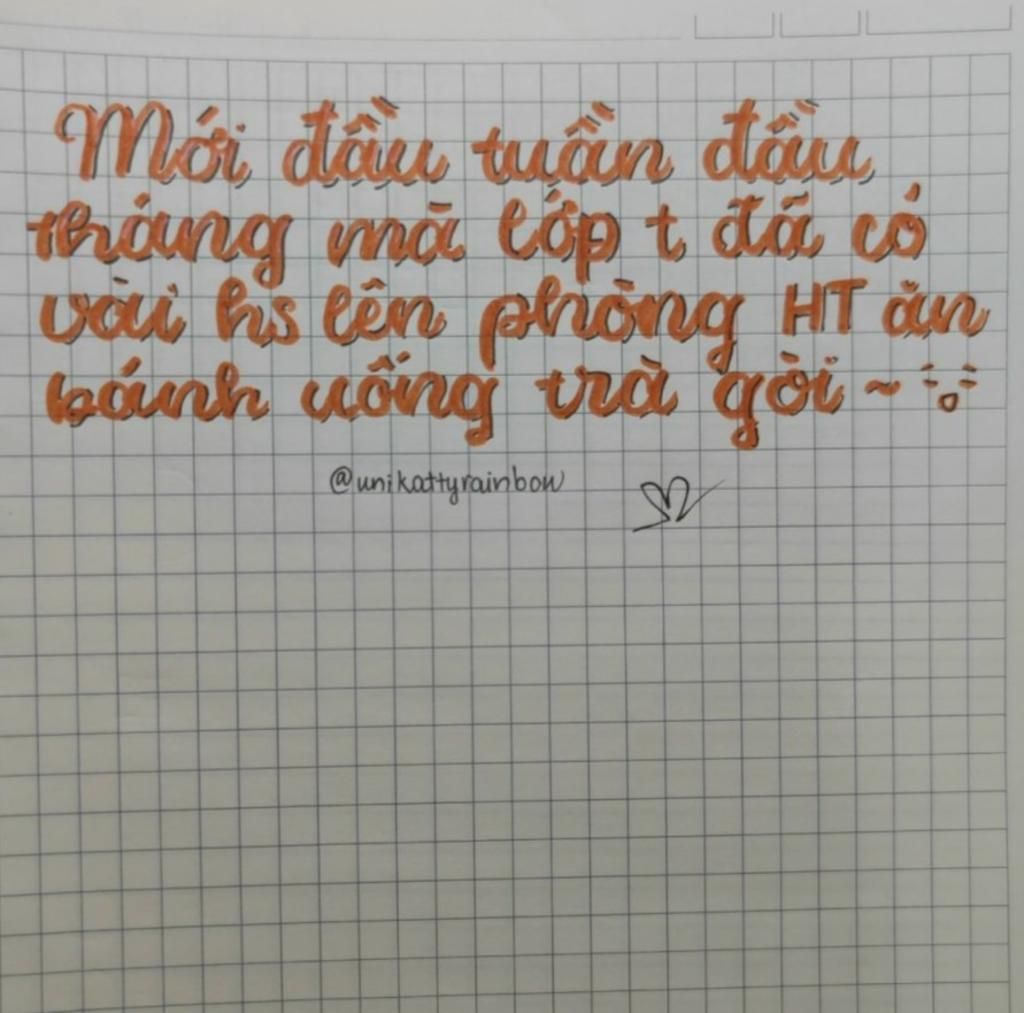 Mới đầu tuần đầu
tháng mà lớp t đã có
vài hs lên phòng HT ăn
bánh uống trà gòi ~
@unikattyrainbow